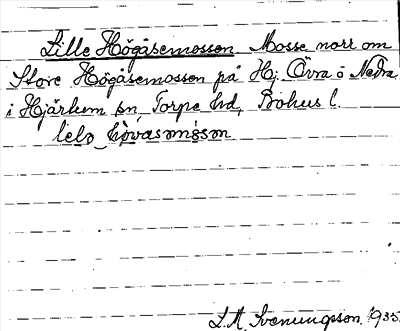 Lille Högåsemossen Mosse norr om
Store Högåsemossen på Hj. Övra o Nedra
i Hjärtum sn, Torpe hd, Bohus l.
lels_hòvasmósən
S. A. Svenungsson. 1935.